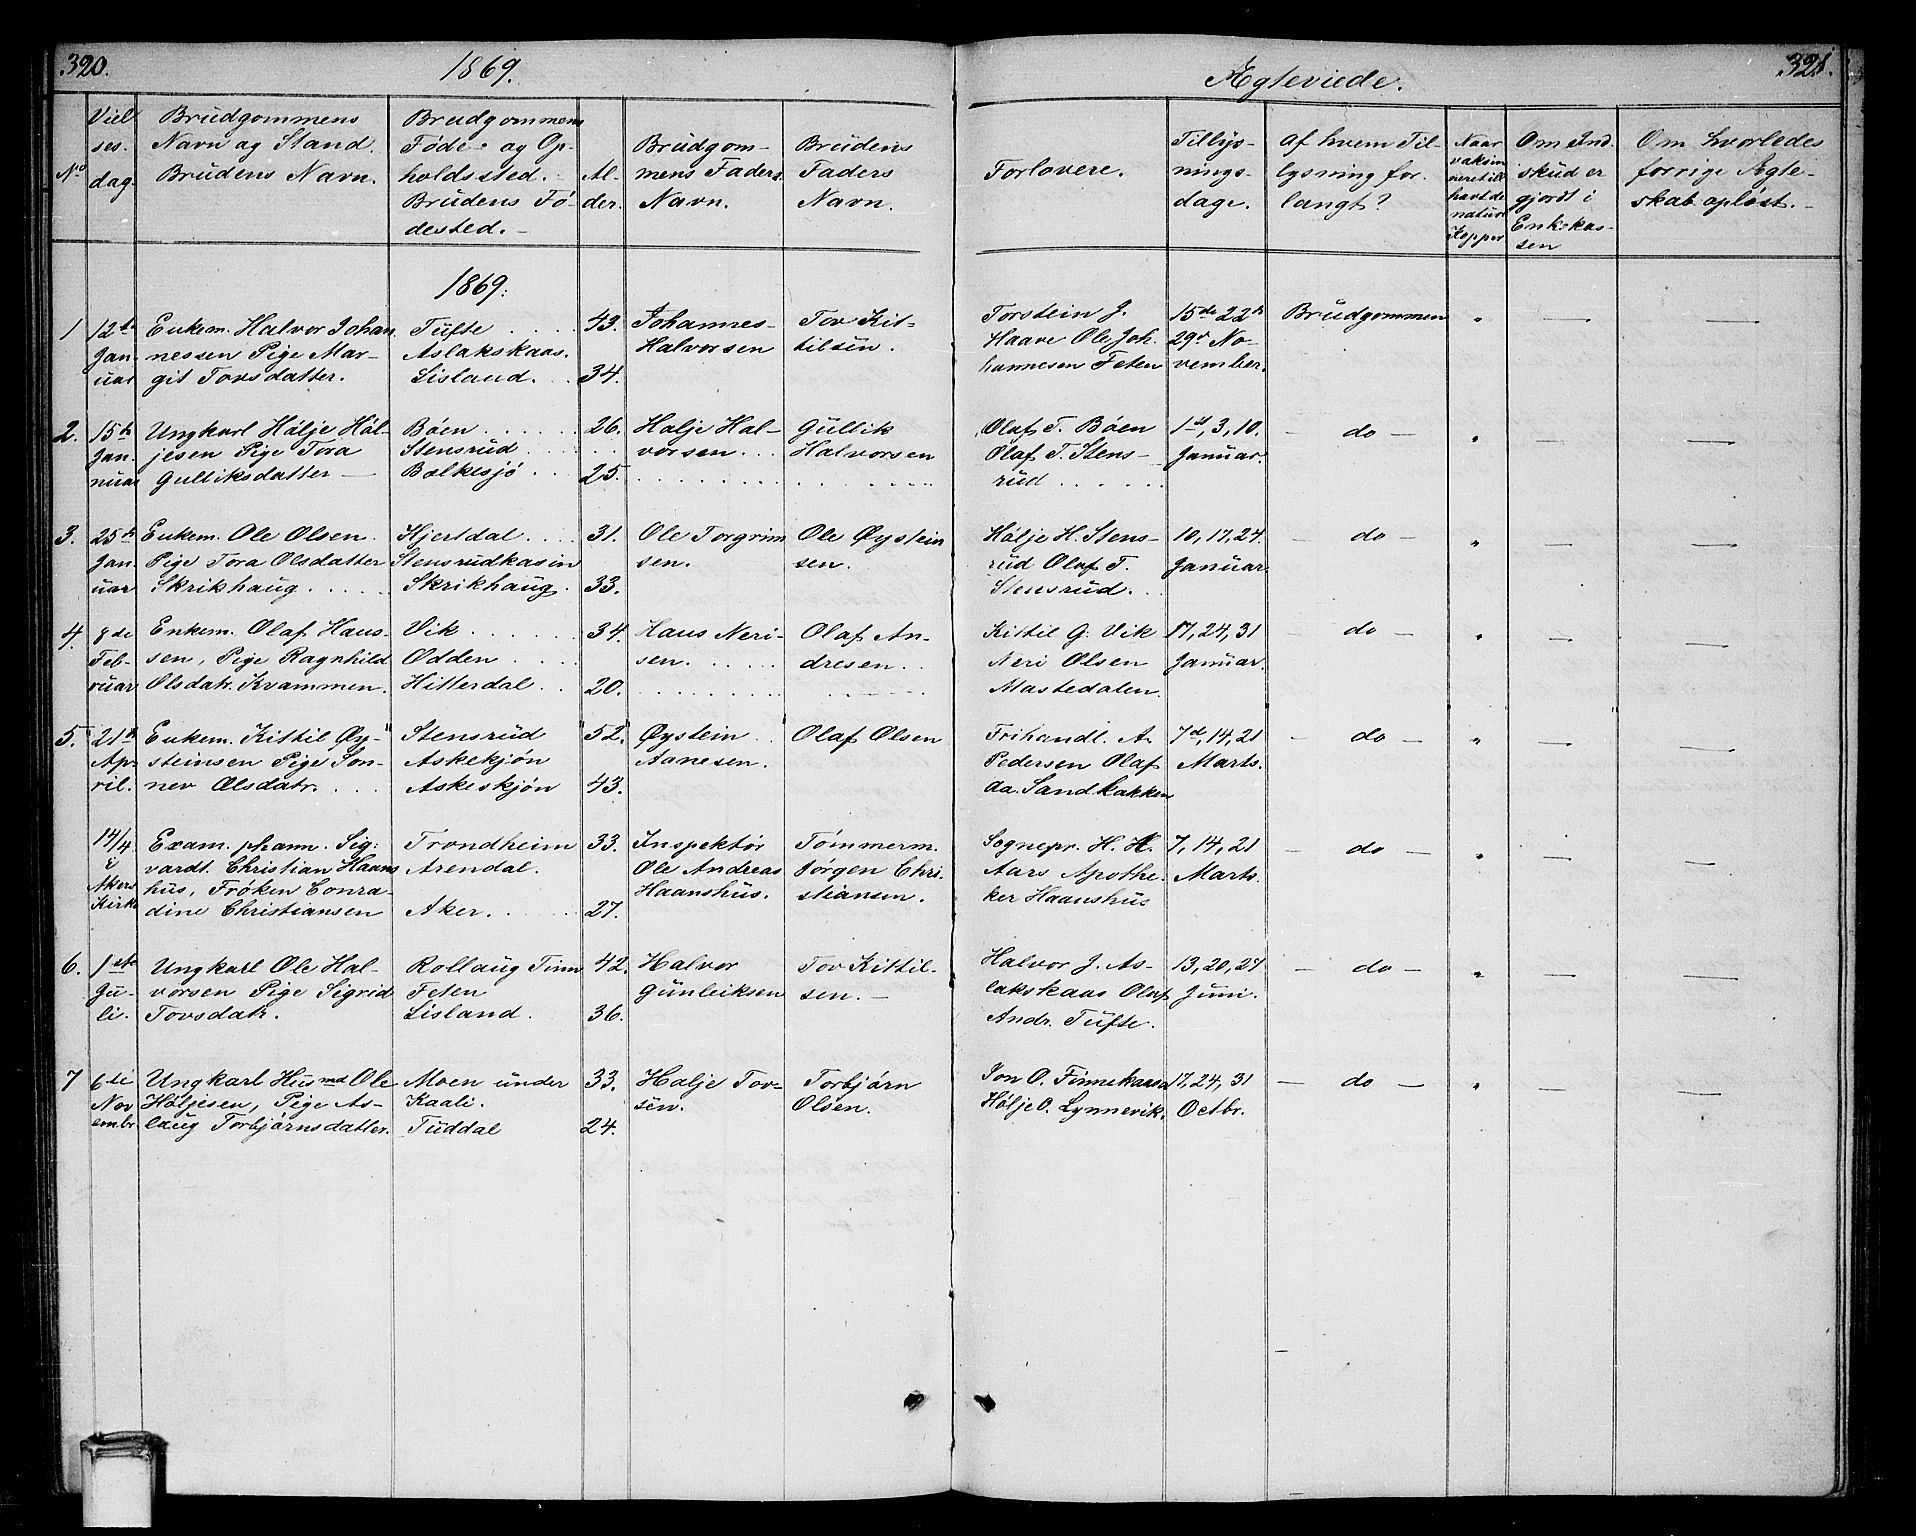 320.
1869.
Ægteviede.
321.
No
Viel
ses-
dag.
Brudgommens
Navn og Stand.
Brudens Navn.
Brudgommens
Føde- og Op-
holdssted. -
Brudens Fø-
dested. -
Al-
der.
Brudgom-
mens Faders
Navn.
Brudens
Faders
Navn.
Forlovere.
Tillys-
nings-
dage.
Af hvem Til-
lysning for-
langt?
Naar
vaksin
neret ell
havt de
naturl
Kopper
Om Ind-
skud er
gjordt i
Enkekas-
sen
Om hvorledes
forrige Ægte-
skab opløst. -
1869.
1
12te
Jan-
uar
Enkem. Halvor Johan
nessen Pige Mar-
git Tovsdatter.
Tufte
Aslakskaas.
Lisland.
43.
34.
Johannes
Halvorsen
Tov Kit-
tilsen.
Torstein J.
Haave Ole Joh.
hannesen Feten
15de 22de
29de No-
vember.
Brudgommen
"
—
—
2.
15de
Jan-
nuar
Ungkarl Hølje Høl-
jesen Pige Tora
Gulliksdatter
Bøen
Stensrud
Bolkesjø
26.
25.
Halje Hal-
vorsen
Gullik
Halvorsen
Olaf T. Bøen
Olaf T. Stens-
rud
1ste, 3, 10.
Januar.
— do —
"
—
—
3.
25de
Jan-
uar
Enkem. Ole Olsen.
Pige Tora Olsdatter
Skrikhaug
Hjertdal
Stensrudkasin
Skrikhaug.
31.
33.
Ole Torgrim
sen.
Ole Øystein
sen.
Hølje H. Stens-
rud Olaf T.
Stensrud.
10, 17, 24.
Januar.
— do —
"
—
—
4.
8de
Feb-
ruar
Enkem. Olaf Hans-
sen, Pige Ragnhild
Olsdatr. Krammen.
Vik
Odden
Hitterdal
34.
20.
Hans Neri-
sen.
Olaf An-
dresen.
Kittil G. Vik
Neri Olsen
Mastedalen.
17, 24, 31
Januar.
— do —
"
—
—
5.
21de
Ap-
ril.
Enkem. Kittil Øy-"
steinsen Pige Søn-
nev Olsdatr.
Stensrud
Askekjøn
Askeskjøn
"52."
43.
Øystein
Aanesen.
"
Olaf Olsen
Frihandl. A.
Pedersen Olaf
Aa. Sandbakken
7de, 14, 21
Marts.
— do —
"
—
—
14/4
i
Akers
Kirke
Exam. pharm. Sig-
vardt. Christian Haans
hus, Frøken Conra-
dine Christiansen
Trondheim
Arendal.
Aker.
33.
27.
Inspektør
Ole Andreas
Haanshus.
Tømmerm.
Jørgen Chri-
stiansen.
Sognepr. H. H.
Aars Apothe.
ker Haanshus
7, 14, 21
Marts.
— do —
"
—
—
6.
1ste
Ju-
li.
Ungkarl Ole Hal-
vorsen Pige Sigrid
Tovsdatr.
Rollaug Tinn
Feten
Lisland.
42.
36.
Halvor
Gunleiksen
Tov Kittil-
sen. -
Halvor J. As-
lakskaas Olaf
Andr. Tufte.
13, 20, 27
Juni.
— do —
"
—
—
7
6te
Nov
embr.
Ungkarl Husmd Ole
Høljesen, Pige As-
laug Torbjørnsdatter.
Moen under
Kaali.
Tuddal
33.
24.
Halje Tov-
sen.
Torbjørn
Olsen.
Jon O. Finnekaasa
Hølje O. Lynnevik.
17, 24, 31
Octbr.
— do —
"
—
—